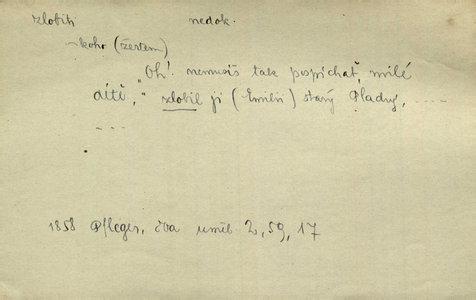 zlobiti nedok.
~koho (žertem)
„Oh! nemusíš tak pospíchat, milé
dítě," zlobil ji (Emilii) starý Hladný, ....
...
1858 Pfleger, Dva uměl. 2, 59, 17